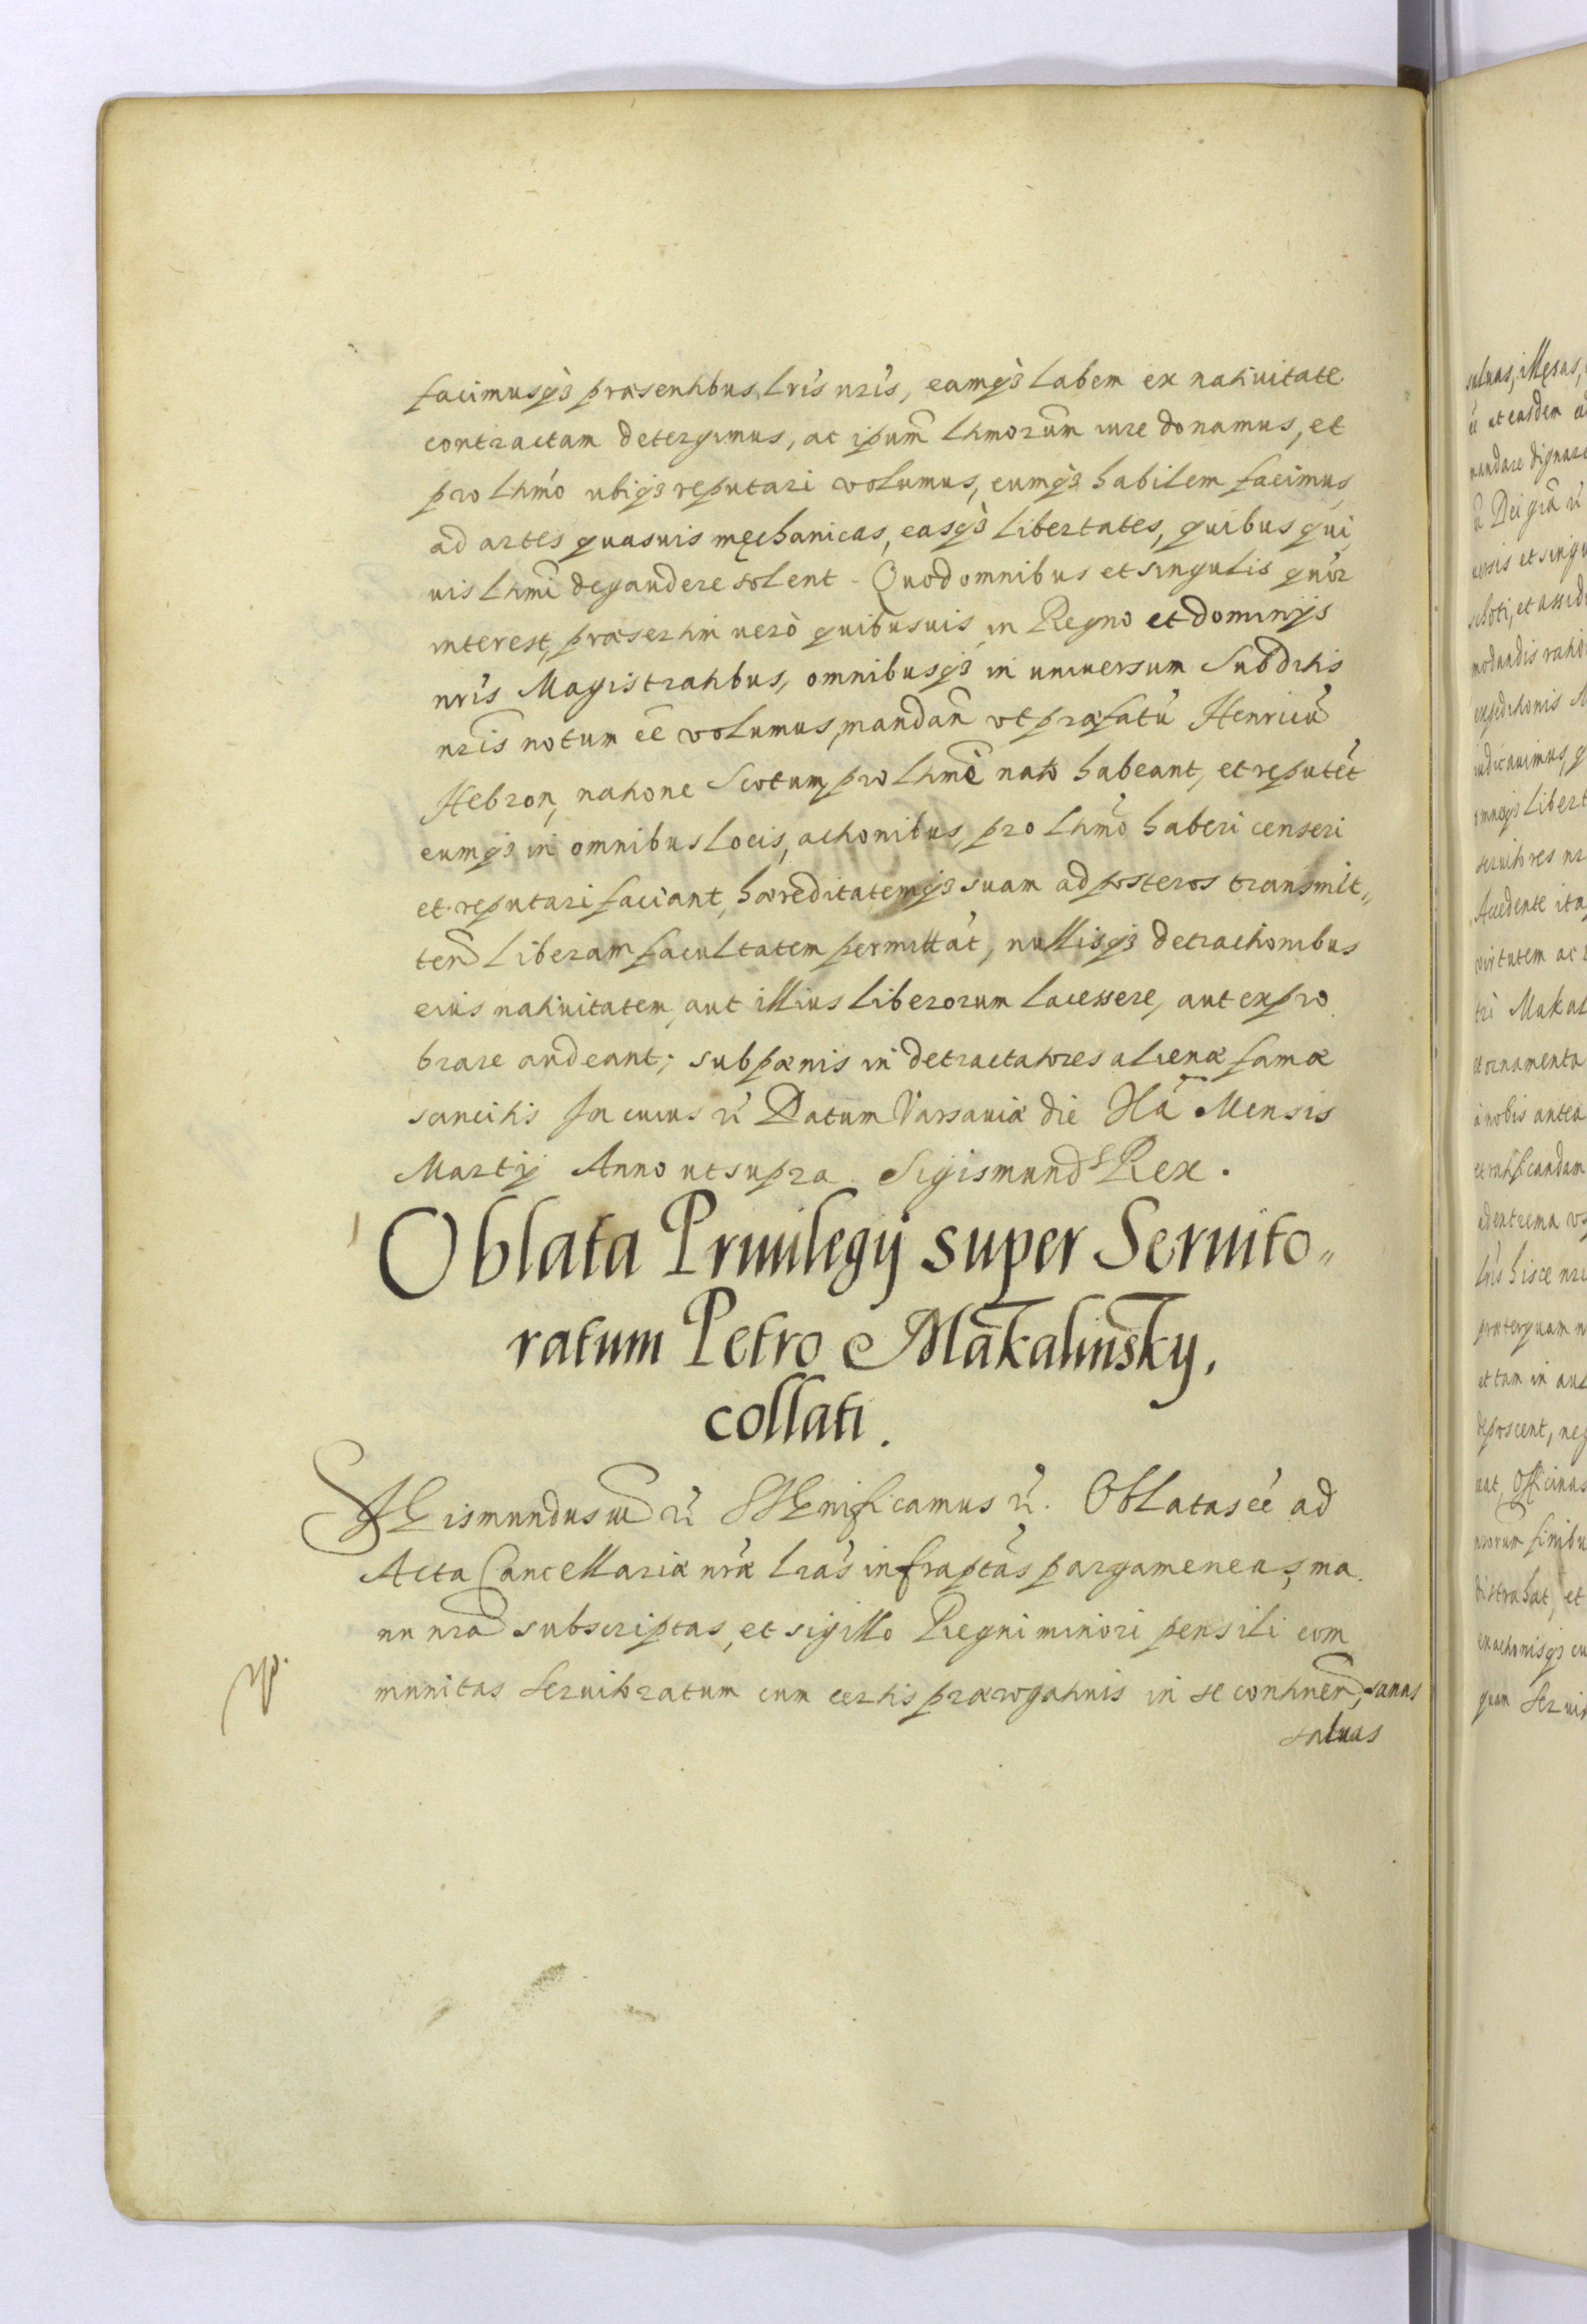 facimusq́ꝫ præsentibus lris nris, eamq́ꝫ labem ex natiuitate
contractam detergimus, ac ipsum lhmorum iure donamus, et
pro lhmo ubiqꝫ reputari volumus, eumqꝫ habilem facimus
ad artes quasuis męchanicas, easq́ꝫ libertates, quibus qui
uis lhmi degaudere solent. Quod omnibus et singulis quor
interest, præsertim uerò quibusuis in Regno et dominijs
nris Magistratibus, omnibusqꝫ in uniuersum Subditis
nris notum eê volumus, mandan vt præfatũ Henricũ
Hebron, natione Scotum, pro lhmè nato habeant, et reputẽt
eumqꝫ in omnibus locis, actionibus, pro lhmo haberi censeri
et reputari faciant, hæreditatemqꝫ suam ad posteros transmit„
ten liberam facultatem permittãt, nullisqꝫ detractionibus
eius natiuitatem, aut illius liberorum lacessere, aut expro
brare audeant; sub pænis in detractatores alienæ famæ
sancitis In cuius rei Datum Varsauiæ die IIa Mensis
Martij Anno ut supra Sigismundꝰ Rex.
Oblata Priuilegij super Seruito„
ratum Petro Makalinsky,
collati.
SIGismundus III rẽ SIGnificamus rẽ. Oblatas eê ad
Acta Cancellariæ nræ lras infraptas pargameneas, ma
nu nra subscriptas, et sigillo Regni minori pensili com
munitas Seruitoratum cum certis prærogatiuis in se continen, sanas
saluas